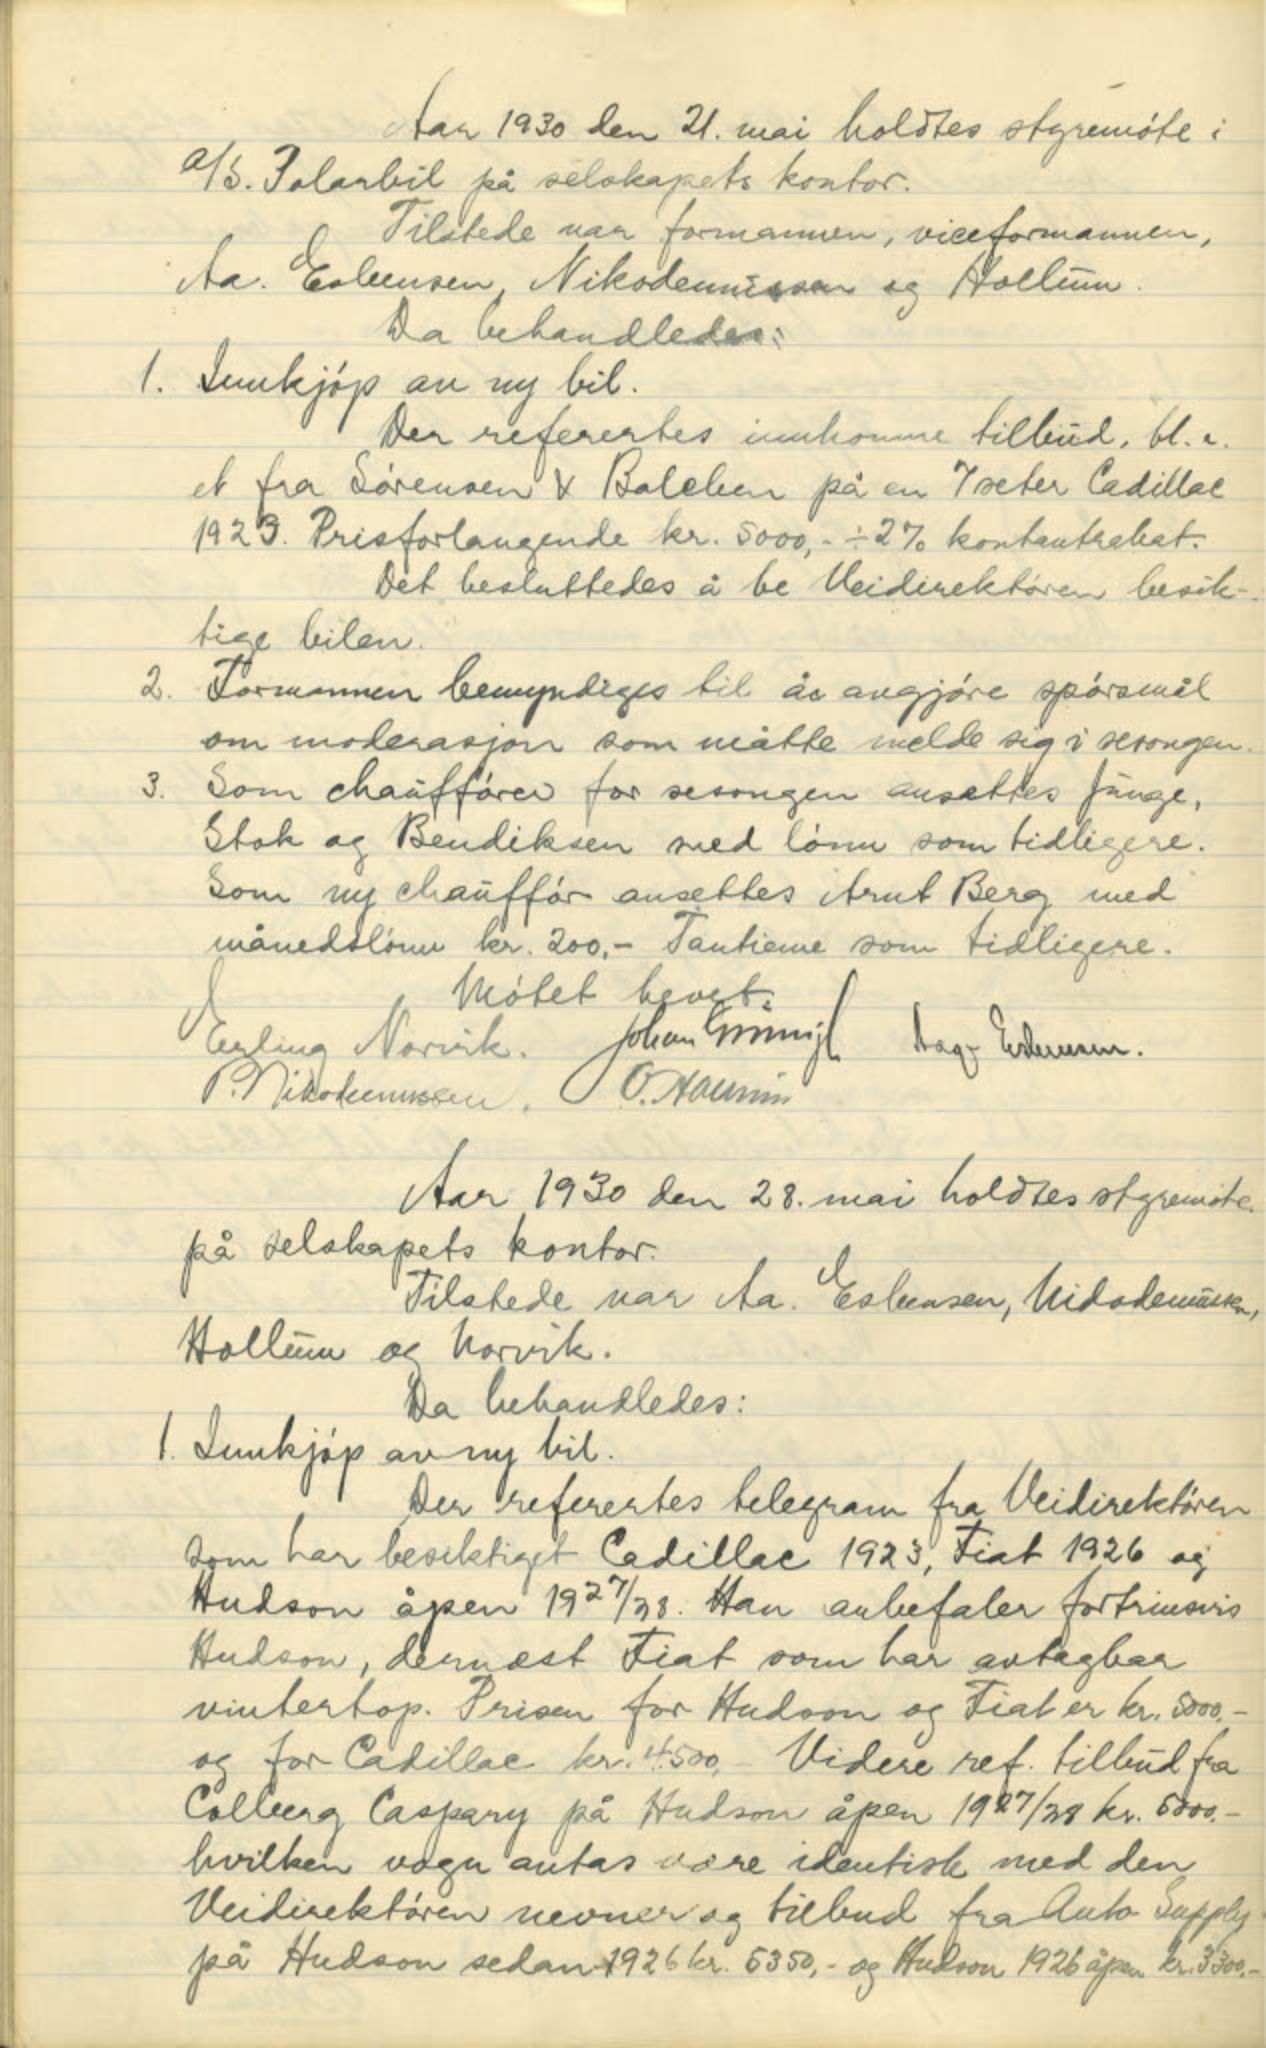 Aar 1930 den 21. mai holdtes styremöte i
A/S. Polarbil på selskapets kontor.
Tilstede var formannen, viceformannen,
Aa. Esbensen, Nikodemussen og Hollum.
Da behandledes:
1. Innkjöp av ny bil.
Der refertes innkomne tilbud, bl. a.
et fra Sörensen & Balchen på en 7 seter Cadillac
1923. Prisforlangende kr. 5000,- ÷ 2% kontantrabat.
Det besluttedes å be Veidirektören besik-
tige bilen.
2. Formannen bemyndiges til å avgjöre spörsmål
om moderasjon som måtte melde sig i sesongen.
3. Som chaufförer for sesongen ansettes Junge,
Stok og Bendiksen med lönn som tidligere.
Som ny chafför ansettes Arnt Berg med
månedslönn kr. 200,- Tantieme som tidligere.
Mötet hevet.
Erling Norvik. Johan Aage Esbensen.
P. Nikodemussen. O. Hollum
Aar 1930 den 28. mai holdtes styremöte
på selskapets kontor.
Tilstede var Aa. Esbensen, Nikodemussen,
Hollum og Norvik.
Da behandledes:
1. Innkjöp av ny bil.
Der refertes telegram fra Veidirektören
som har besiktiget Cadillac 1923, Fiat 1926 og
Hudson åpen 1927/28. Han anbefaler fortrinsvis
Hudson, dernæst Fiat som har avtagbar
vintertop. Prisen for Hudson og Fiat er kr. 5000.-
og for Cadillac kr. 4500,- Videre ref. tilbud fra
Colberg Caspary på Hudson åpen 1927/28 kr. 5000.-
hvilken vogn antas være identisk med den
Veidirektören nevner og tilbud fra Auto Supply
på Hudson sedan 1926 kr. 5350,- og Hudson 1926 åpen kr. 3300.-